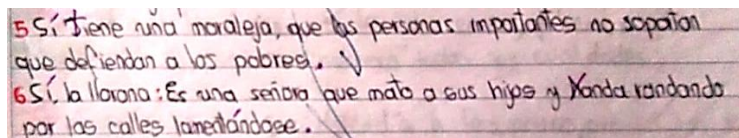 5 Sí tiene una moraleja, que las personas importantes no sopoiton
que defiendan a los pobres.
6 Sí, la llorona: Es una señora que mato a sus hijos y Xanda randando
por las calles lamentándose.